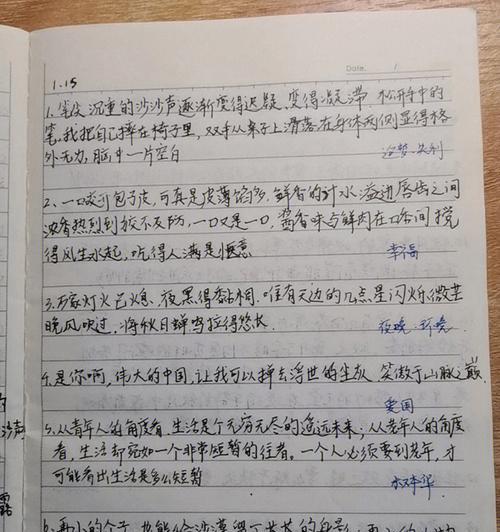 Date. /
1.15
1、笔尖沉重的沙沙声逐渐变得迟疑、变得凝滞。松开手中的
笔,我把自己摔在椅子里,双手从桌子上滑落在身体两侧显得格
外无力,脑中一片空白
失利
2、一口咬开包子皮,可真是皮薄馅多,鲜香的汁水溢边唇齿之间
浓香热烈到猝不及防,一口又是一口,酱香味与鲜肉在口舌间搅
得风生水起,吃得人满是惬意
幸福
3.万家灯火已熄,夜黑得黏稠,唯有天边的几点星闪烁微茫
晚风吹过,将秋日蝉鸣拉得悠长.
夜晚、环境
4.是你啊,伟大的中国,让我可以掸去浮世的尘灰,笑傲于山脉之巅
爱国
5、从青年人的角度看,生活是个无穷无尽的遥远未来;从老年人的角度
看,生活却宛如一个非常短暂的往昔。一个人必须要到老年,才
可能看出生活是多么短暂
叔本华
沙声